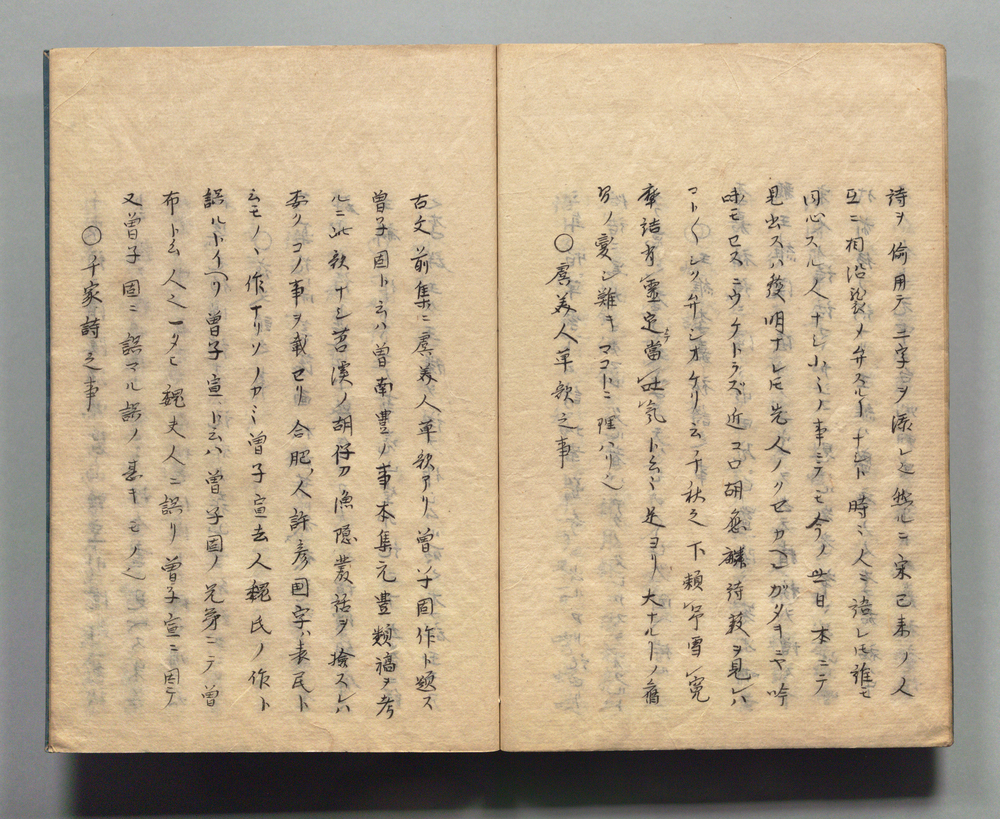 詩ヲ偷用テ二字ヲ添シ也然ルニ宋已来ノ人
互ニ相沿襲メ弁スルヿナシト時々人ニ語レ𪜈誰モ
同心スル人ナシ小〻ノ事ニテモ今ノ世日本ニテ
見出スハ発明ナレ𪜈先人ノノセカヘガタキニヤ吟
味モセスニウケトラズ近コロ胡應麟詩薮ヲ見レハ
コト〱シク弁シオケリ云 千秋之下頼予雪冤
摩詰有霊定當吐気ト云々是ヨリ大ナルヿノ旧
習ノ変シ難キマコトニ理ハリ也
〇虞美人草歌之事
古文前集ニ虞美人草歌アリ曽子固作ト題ス
曽子固ト云ハ曽南豊ノ事本集元豊類藁ヲ考
ルニ此歌ナシ苕渓ノ胡仔カ漁隠叢話ヲ撿スレハ
委クコノ事ヲ載セリ合肥ノ人許彦国字ハ表民ト
云モノヽ作ナリソノカミ曽子宣夫人魏氏ノ作ト
誤ルトイヘリ曽子宣ト云ハ曽子固ノ兄弟ニテ曽
布ト云人也一タヒ魏夫人ニ誤リ曽子宣ニ因テ
又曽子固ニ誤マル誤ノ甚キモノ也
〇千家詩之事